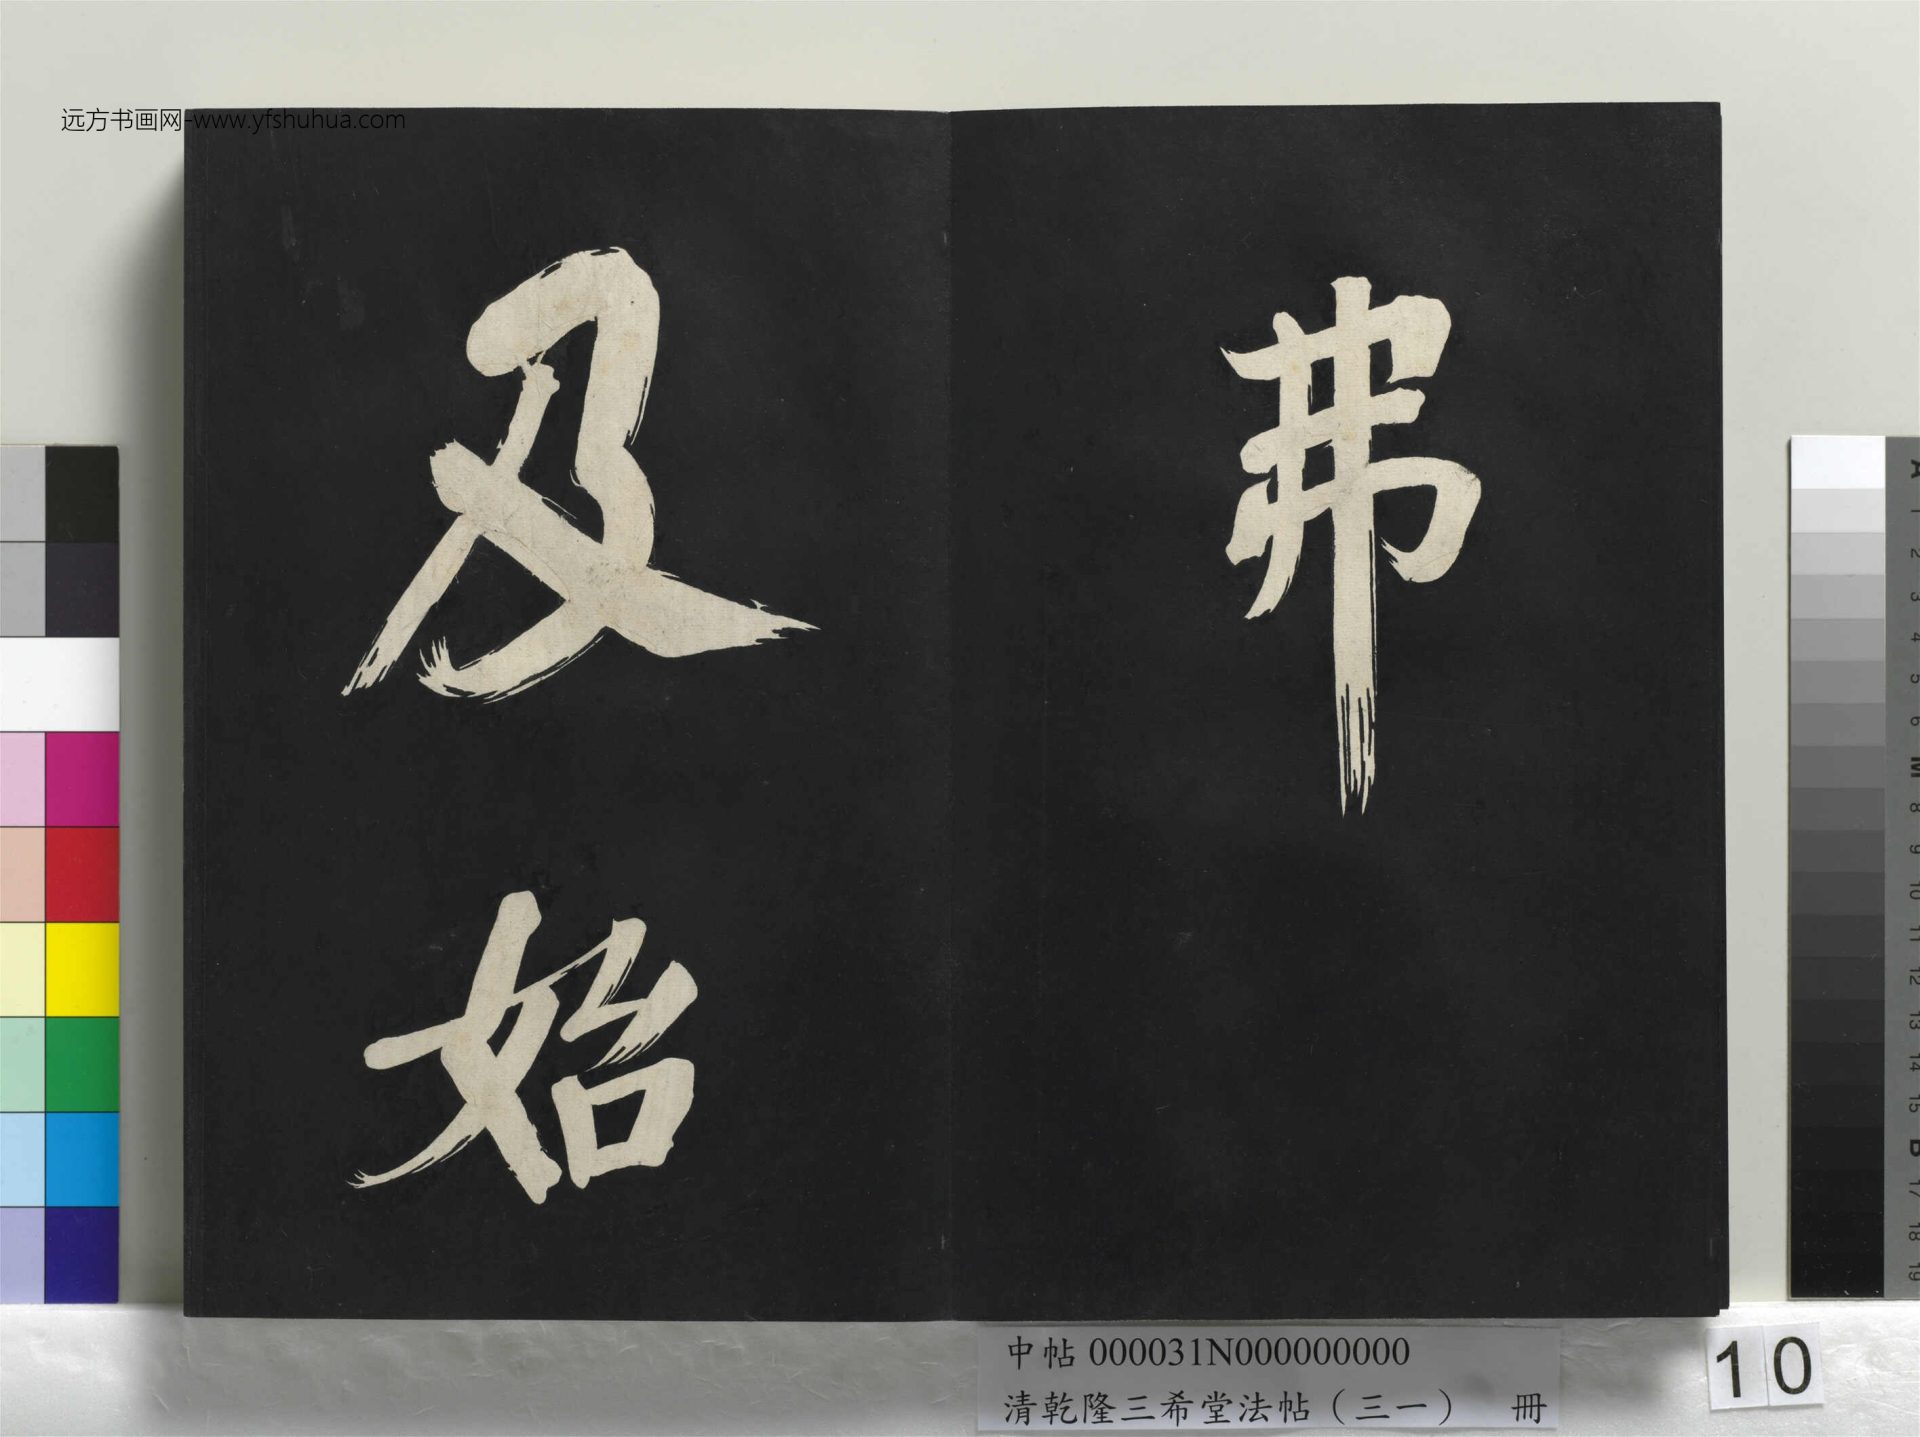 远方书画网-www.yfshuhua.com
弗
及
始
中帖 000031N000000000
清乾隆三希堂法帖（三一） 冊
10
A
1
2
3
4
5
6
M
8
9
10
11
12
13
14
15
B
17
18
19